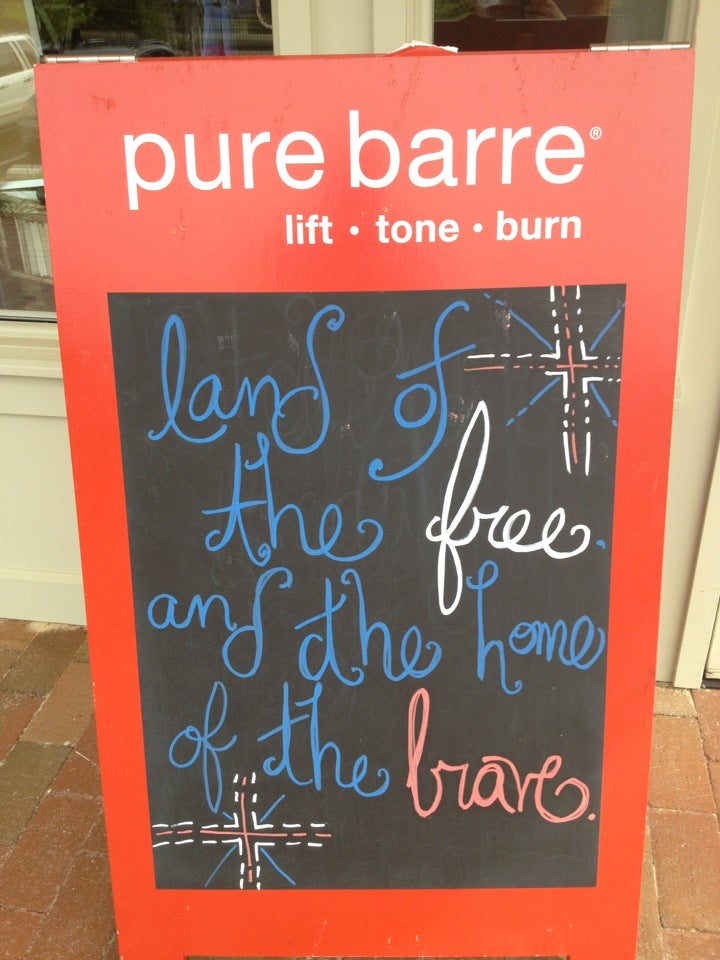 pure barre®
lift • tone • burn
land of
the free.
and the home
of the brave.